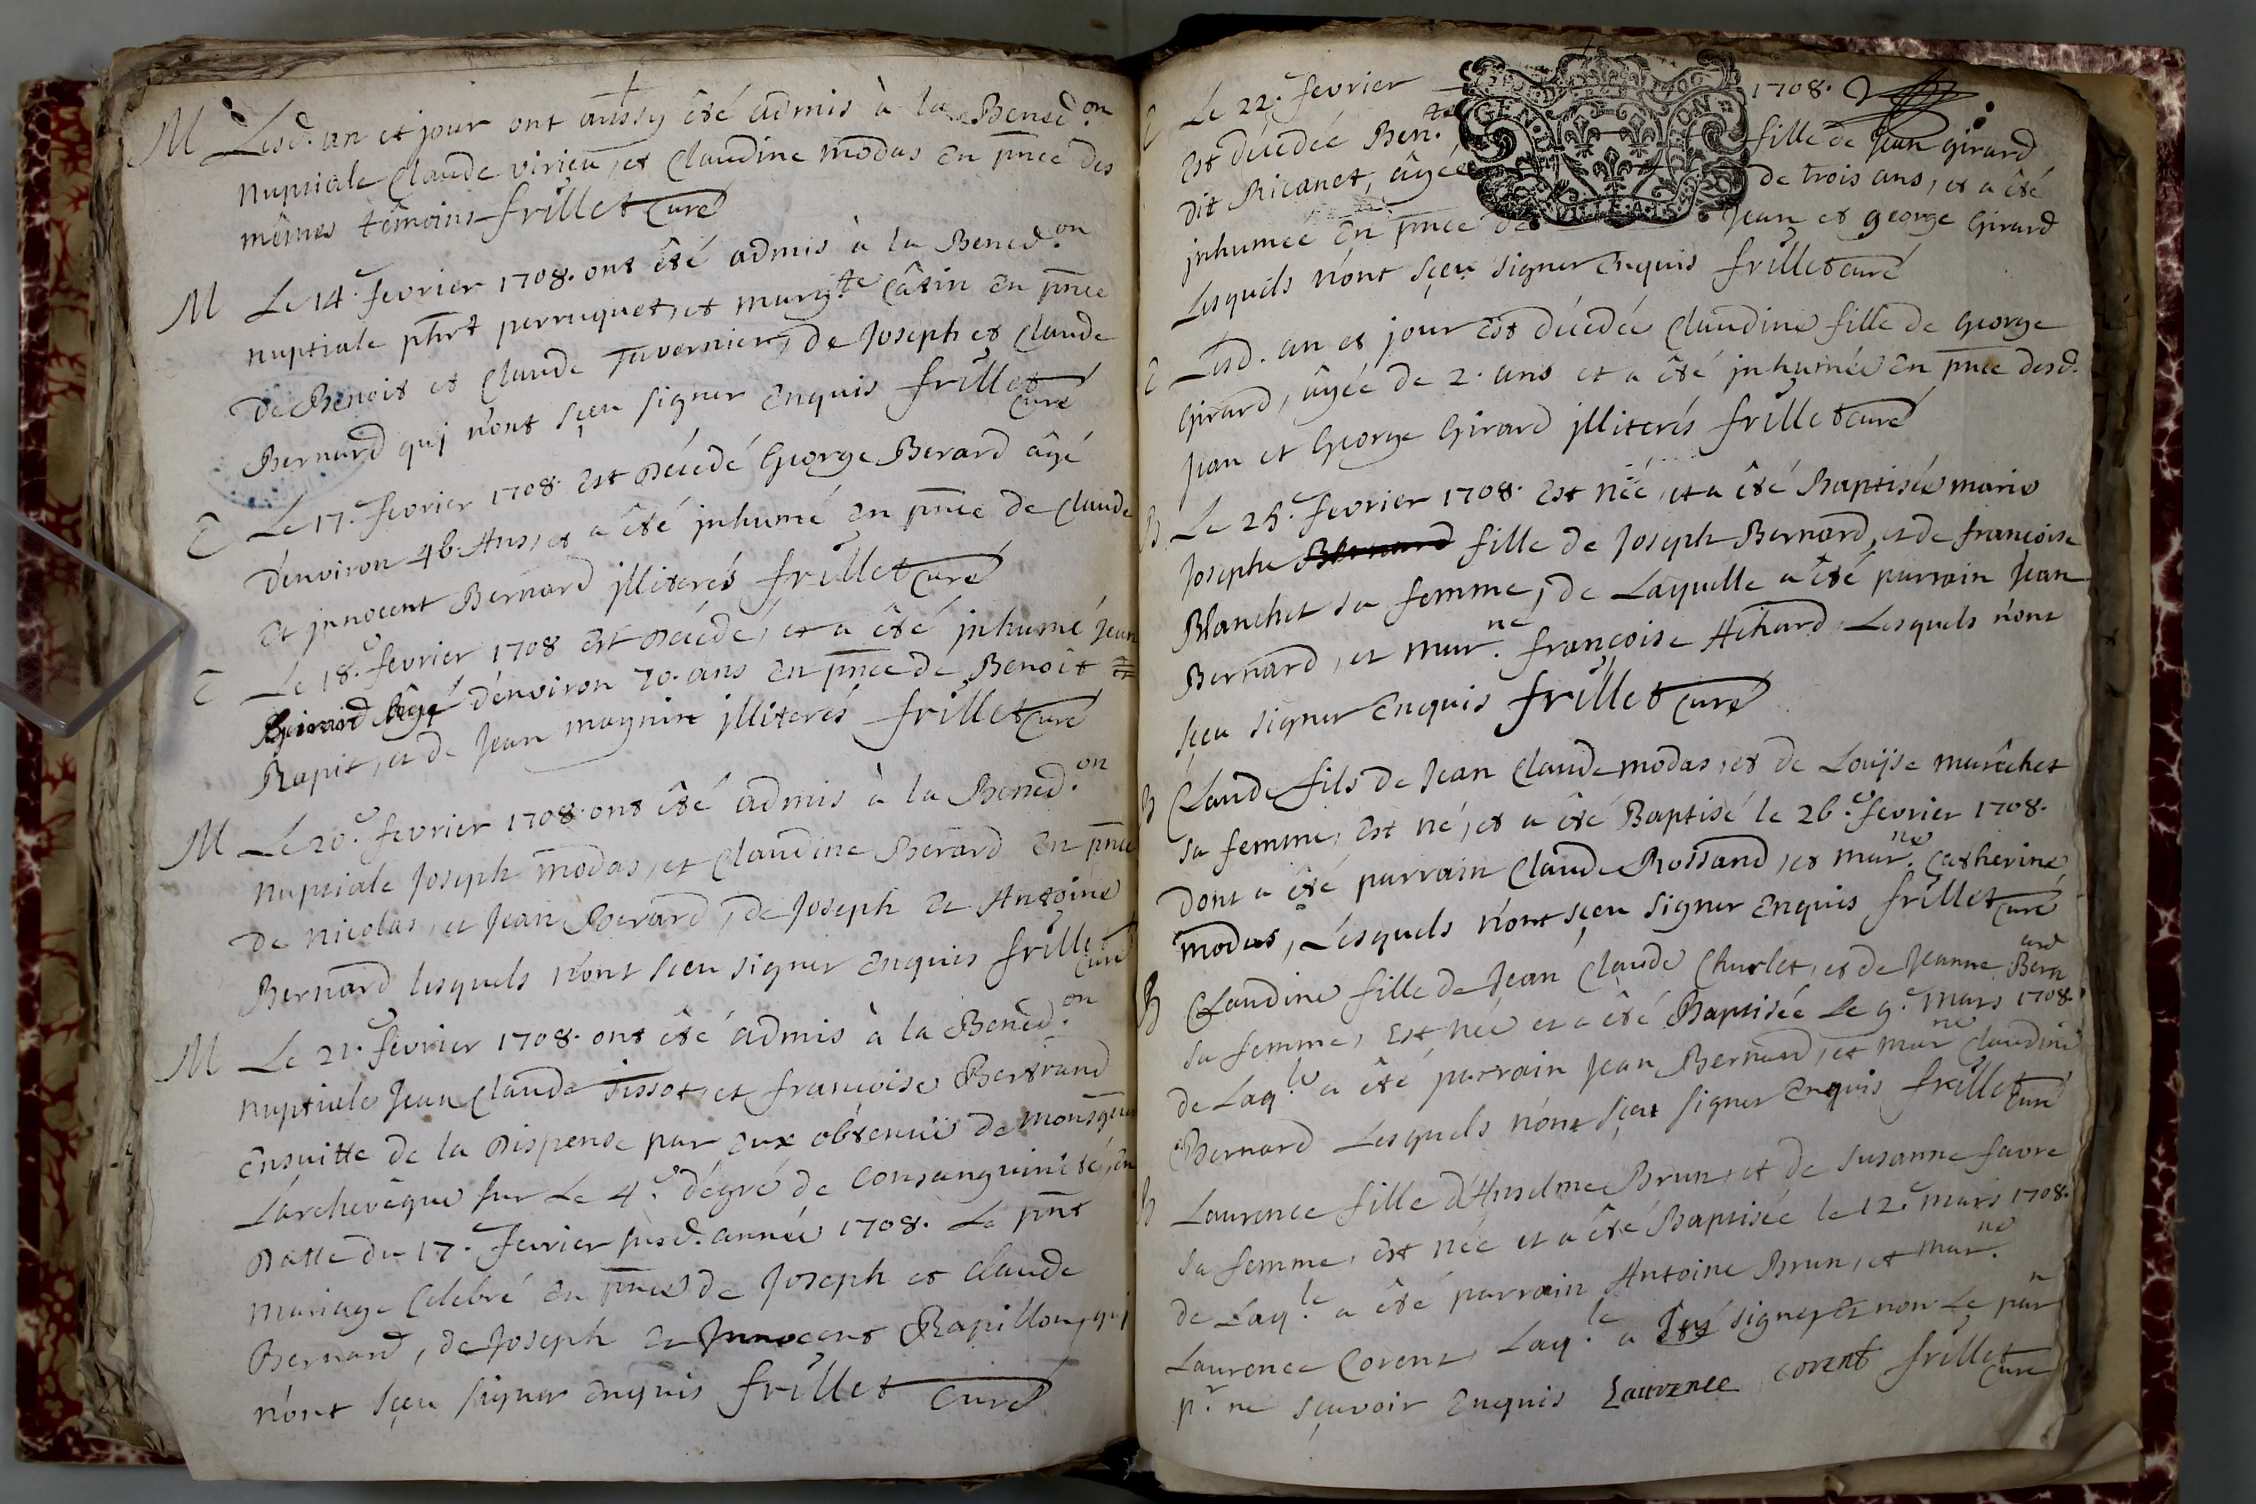 M Lesd. an et jour ont aussy êté admis à la Bened.on
nuptiale Claude virieu, et Claudine modas en pnce des
mêmes têmoins frillet Curé
M Le 14.e fevrier 1708. ont êté admis à la Bened.on
nuptiale perruquet, et marg.te Câtin en pnce
de Benoit et Claude Tavernier, de Joseph et Claude
Bernard quj n'ont sçeu signer enquis frillet curé
Le 17.e fevrier 1708. est décédé George Berard âgé
d'environ 46. Ans, et a êté jnhumé en pnce de Claude
et jnnocent Bernard jlliterés frillet Curé
Le 18.e fevrier 1708 est décédé, et a êté jnhumé Jean
Girard âgé d'environ 70. ans en pnce de Benoît
Rapit, et de Jean magnin jlliterés frillet Curé
M Le 20.e fevrier 1708. ont êté admis à la Bened.on
nuptiale Joseph modas, et Claudine Berard en pnce
de nicolas, et Jean Berard, de Joseph et Antoine
Bernard lesquels n'ont sçeu signer enquis frillet curé
M Le 21.e fevrier 1708. ont êté admis à la Bened.on
nuptiale Jean Claude Tissot, et françoise Bertrand
ensuitte de la dispense par eux obtenuë de monsgneur
L'archevêque sur Le 4.e dégré de Consanguinité, en
datte du 17.e fevrier susd. année 1708. Le pnt
mariage Celebré en pnce de Joseph et Claude
Bernard, de Joseph et Jnnocent Rapillon, quj
n'ont sçeu signer enquis frillet Curé
Le 22.e fevrier 1708.
est décédée Ben.te fille de Jean girard
dit Ricanet, âgée de trois ans, et a êté
jnhumée en pnce de Jean et george Girard
Lesquels n'ont sçeu signer enquis frillet curé
GEN. DE VILLE. A. 15.
Lesd. an et jour est décédée Claudine fille de George
Girard, âgée de 2. ans et a êté jnhumée en pnce desd.
Jean et George Girard jlliterés frillet curé
B Le 25.e fevrier 1708. est née, et a êté Baptisée marie
Josephe Bernard fille de Joseph Bernard, et de françoise
Blanchet sa femme, de Laquelle a êté parrain Jean
Bernard, et mar.ne françoise Achard Lesquels n'ont
sçeu signer enquis frillet Curé
B Claude fils de Jean Claude modas, et de Louÿse marêchet
sa femme, est né, et a êté Baptisé le 26.e fevrier 1708.
dont a êté parrain Claude Rossand, et mar.ne Catherine
modas, Lesquels n'ont sçeu signer enquis frillet curé
B Claudine fille de Jean Claude Charlet, et de Jeanne Berard
sa femme, est née et a êté Baptisée Le 9.e mars 1708.
de Laq.le a êté parrain Jean Bernard, et mar.ne Claudine
Bernard Lesquels n'ont sçeu signer enquis frillet curé
B Laurence fille d'Anselme Brun, et de Susanne favre
sa femme, est née et a êté Baptisée le 12.e mars 1708.
de Laq.le a êté parrain Antoine Brun, et mar.ne
Laurence Corent, Laq.le a signé, et non Le parn
p.r ne sçavoir enquis Laurence corent frillet curé